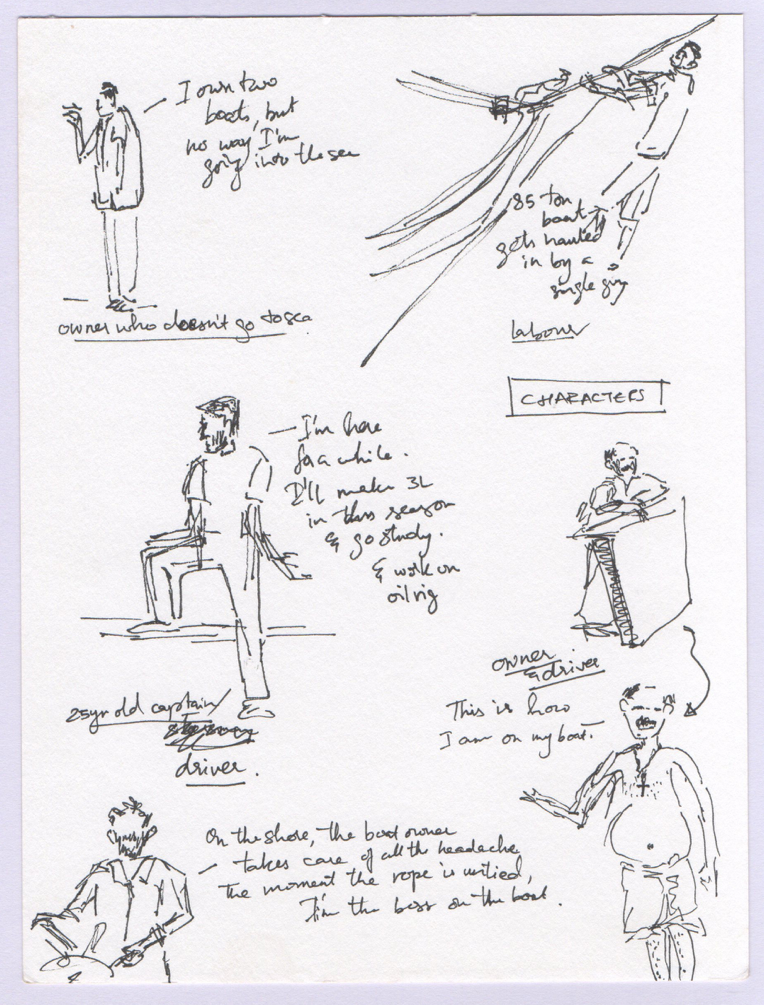 I own two
boats, but
no way I'm
going into the sea
owner who doesn't go to sea
85 ton
boat
gets hauled
in by a
single guy
labour
CHARACTERS
I'm here
for a while.
I'll make 3L
in this season
& go study.
& work on
oil rig
25yr old captain/
driver.
owner
& driver
This is how
I am on my boat.
On the shore, the boat owner
takes care of all the headache
The moment the rope is untied,
I'm the boss on the boat.